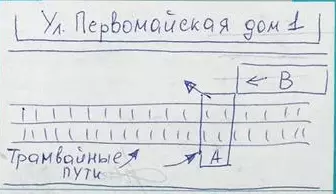 Ул. Первомайская дом 1
В
А
Трамвайные
пути